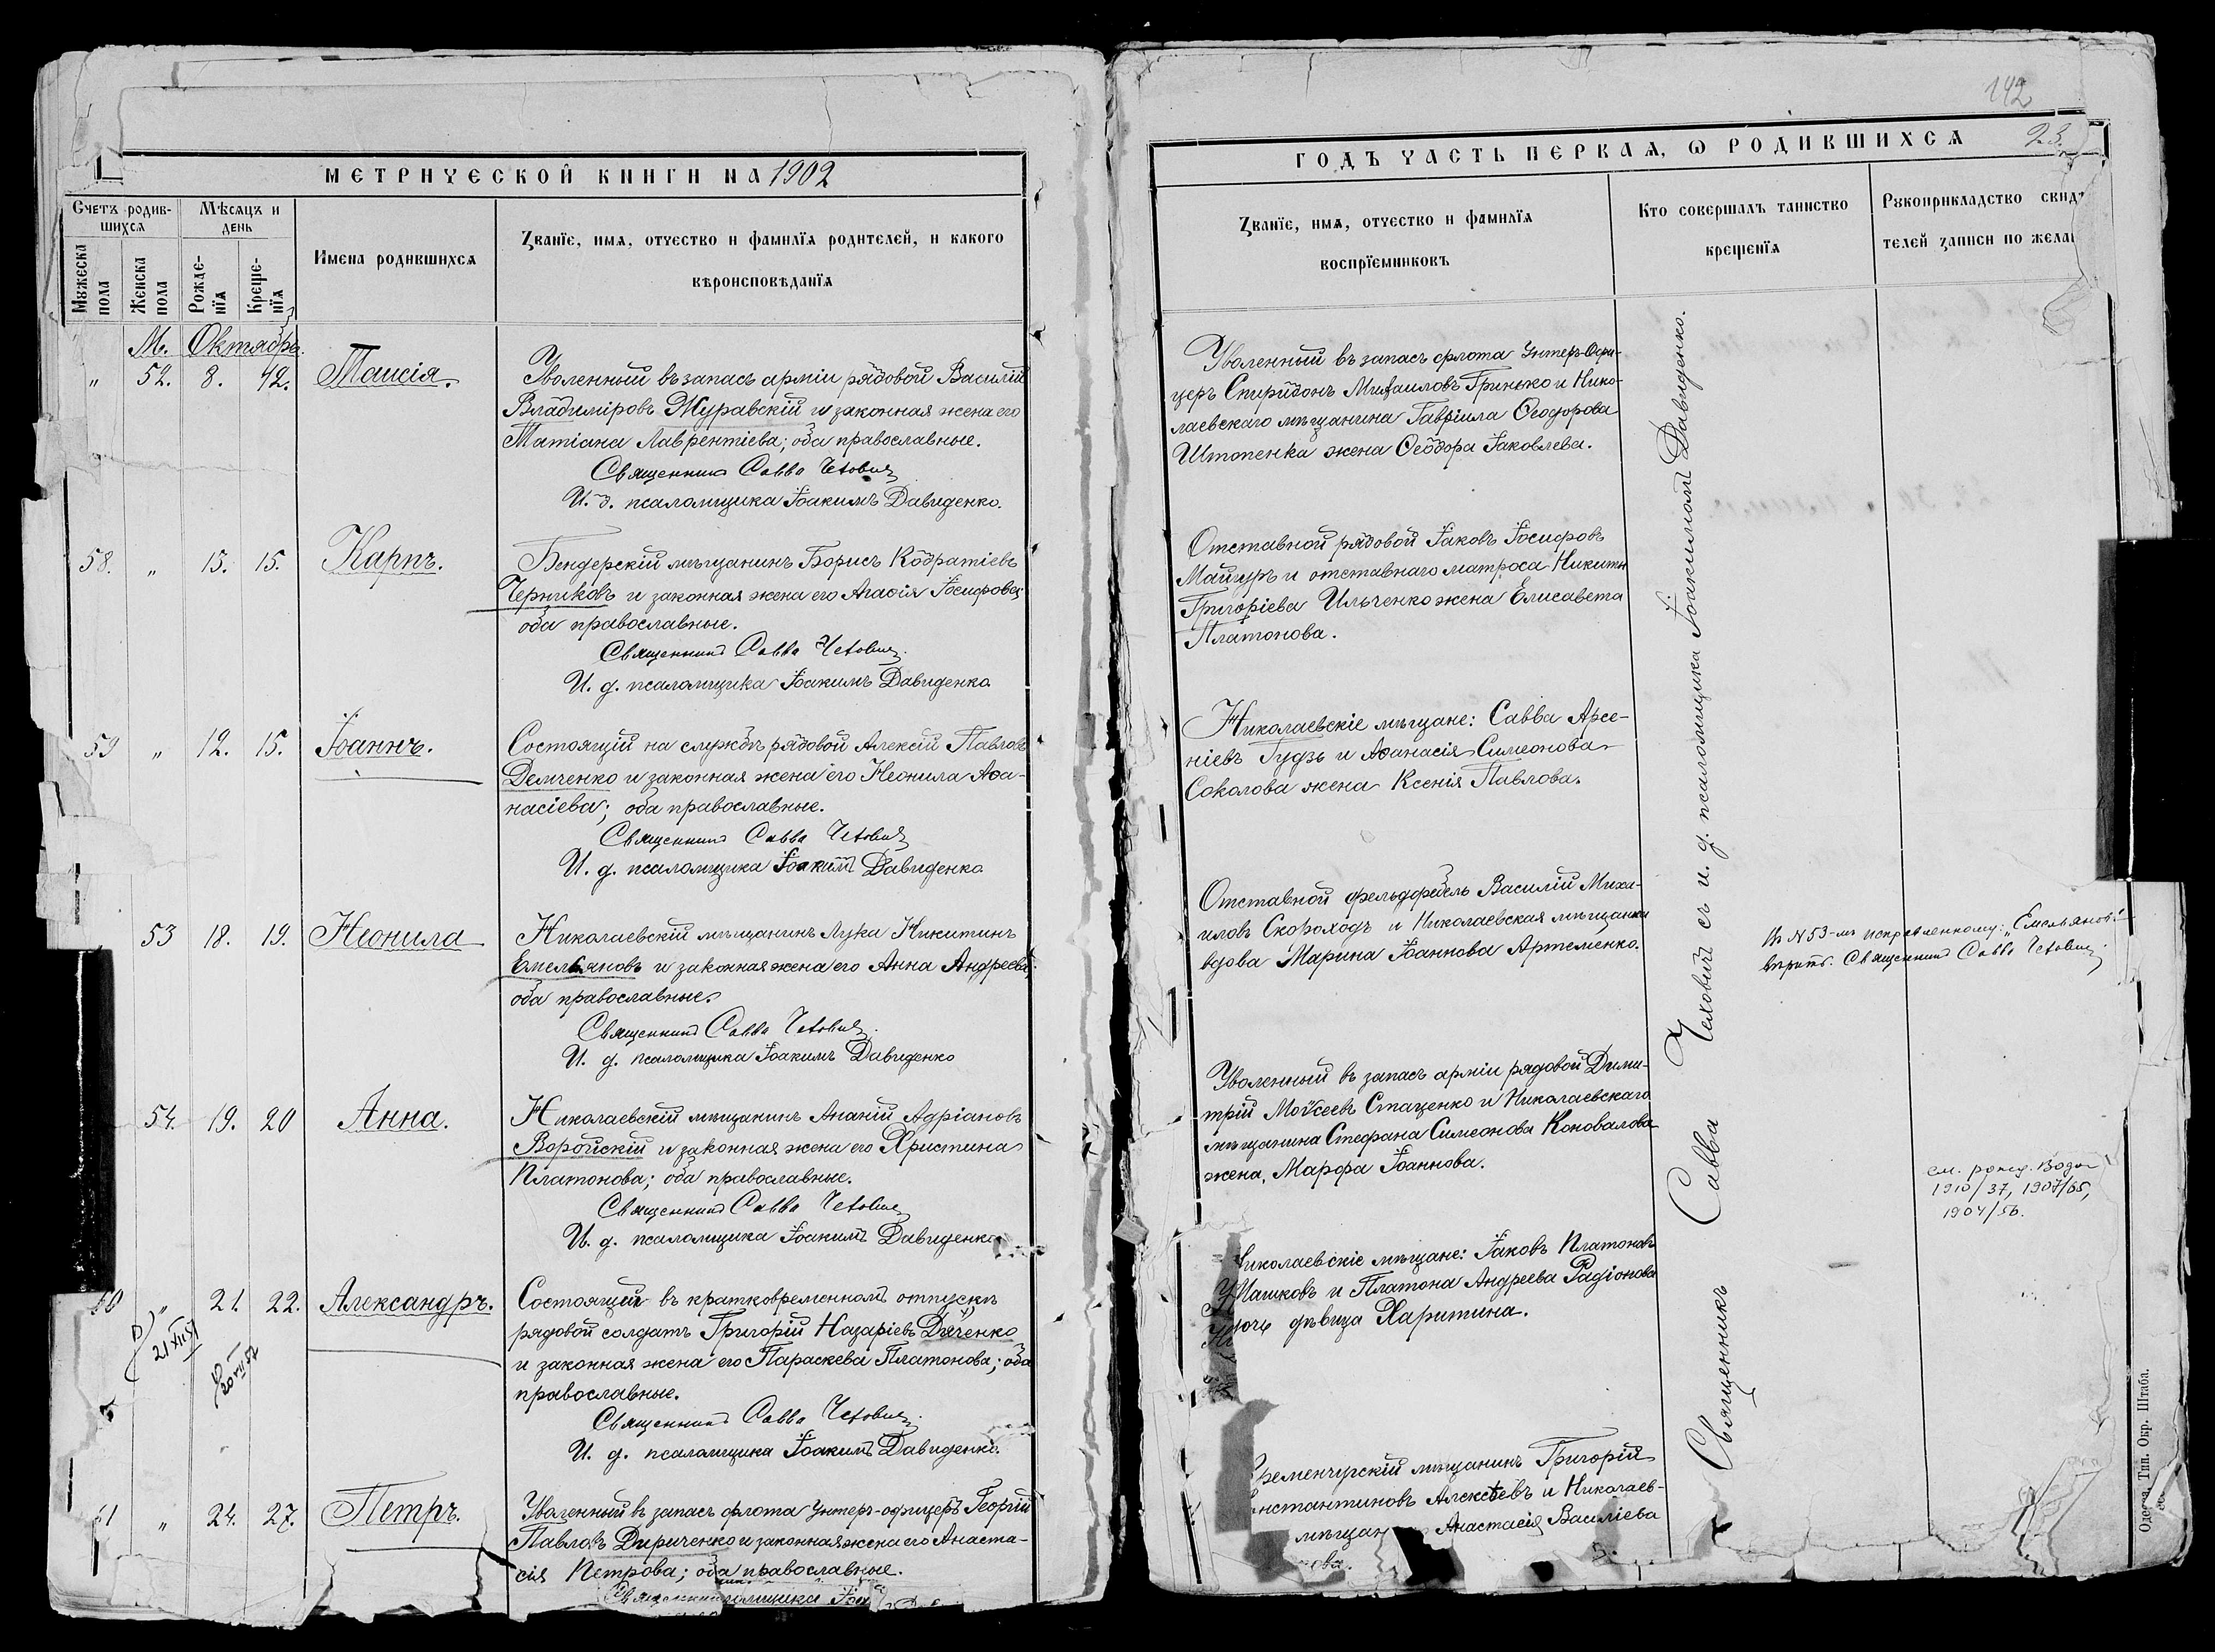 МЕТРИЧЕСКОЙ КНИГИ НА 1902
Счетъ родив-
шихся
Мѣсяцъ и
день
Мужеска
пола
Женска
пола
Рожде-
нїя
Креще-
нїя
Имена родившихся
Званїе, имя, отчество и фамилїя родителей, и какого
вѣроисповѣданїя
М. Октябрь.
" 52. 8. 12. Таисія.
Уволенный въ запасъ арміи рядовой Василій
Владиміровъ Журавскій и законная жена его
Татіана Лаврентіева; оба православные.
Священникъ Савва Чеховичъ
И. д. псаломщика Іоакимъ Давиденко.
58. " 13. 15. Карпъ.
Бендерскій мѣщанинъ Борисъ Кодратіевъ
Черниковъ и законная жена его Агафія Іосифова;
оба православные.
Священникъ Савва Чеховичъ.
И. д. псаломщика Іоакимъ Давиденко
59 " 12. 15. Іоаннъ.
Состоящій на службѣ рядовой Алексій Павловъ
Демченко и законная жена его Неонила Афа-
насіева; оба православные.
Священникъ Савва Чеховичъ
И. д. псаломщика Іоакимъ Давиденко
53 18. 19. Неонила
Николаевскій мѣщанинъ Лука Никитинъ
Емельяновъ и законная жена его Анна Андреева;
оба православные.
Священникъ Савва Чеховичъ.
И. д. псаломщика Іоакимъ Давиденко
54. 19. 20 Анна.
Николаевскій мѣщанинъ Ананій Адріановъ
Воройскій и законная жена его Христина
Платонова; оба православные.
Священникъ Савва Чеховичъ
И. д. псаломщика Іоакимъ Давиденко
60 " 21. 22. Александръ.
Состоящій въ кратковременномъ отпускѣ
рядовой солдатъ Григорій Назаріевъ Дяченко
и законная жена его Параскева Платонова; оба
православные.
Священникъ Савва Чеховичъ.
И. д. псаломщика Іоакимъ Давиденко.
21 XII 51
20 VII 52
61 " 24. 27. Петръ.
Уволенный въ запасъ флота унтеръ-офицеръ Георгій
Павловъ Дириченко и законная жена его Анаста-
сія Петрова; оба православные.
142
ГОДЪ ЧАСТЬ ПЕРВАЯ, Ѡ РОДИВШИХСЯ 23.
Званїе, имя, отчество и фамилїя
воспрїемниковъ
Кто совершалъ таинство
крещенїя
Рукоприкладство свидѣ
телей записи по жела
Уволенный въ запасъ флота унтеръ-офи-
церъ Спиридонъ Михаиловъ Гринько и Нико-
лаевскаго мѣщанина Гавріила Ѳеодорова
Штопенка жена Ѳеодора Іаковлева.
Отставной рядовой Іаковъ Іосифовъ
Майгуръ и отставнаго матроса Никиты
Григоріева Ильченко жена Елисавета
Платонова.
Николаевскіе мѣщане: Савва Арсе-
ніевъ Гудзь и Афанасія Симеонова
Соколова жена Ксенія Павлова.
Отставной фельдфебель Василій Миха-
иловъ Скороходъ и Николаевская мѣщанка
вдова Марина Іоаннова Артеменко.
Уволенный въ запасъ арміи рядовой Дими-
трій Моѵсеевъ Стаценко и Николаевскаго
мѣщанина Стефана Симеонова Коновалова
жена, Марфа Іоаннова.
иколаевскіе мѣщане: Іаковъ Платоновъ
Машковъ и Платона Андреева Радіонова
дочь дѣвица Харитина.
ременчугскій мѣщанинъ Григорій
нстантиновъ Алексѣевъ и Николаев-
мѣщан Анастасія Василіева
ова.
Священникъ Савва Чеховичъ съ и. д. псаломщика Іоакимомъ Давиденко.
Въ N 53-мъ исправленному: „Емельяновъ"
вѣрить. Священникъ Савва Чеховичъ.
см. рожд.
1910/37, 1907/65,
1904/56.
Одесса, Тип. Окр. Штаба.